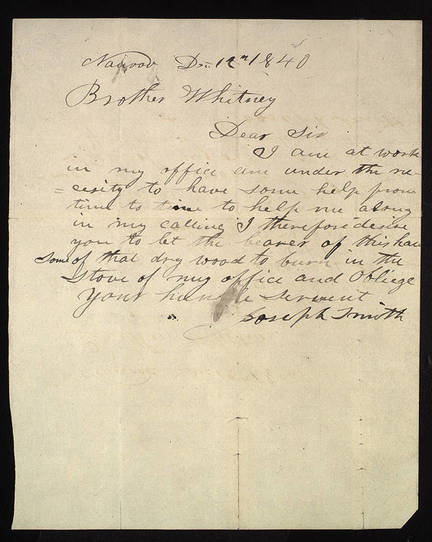 Nauvoo Dec 12th 1840
Brother Whitney
Dear Sir
I am at work
in my office am under the ne
=cesity to have some help from
time to time to help me along
in my calling I therefore desire
you to let the bearer of this have
some of that dry wood to burn in the
stove of my office and Obliege
Your humble servent
Joseph Smith